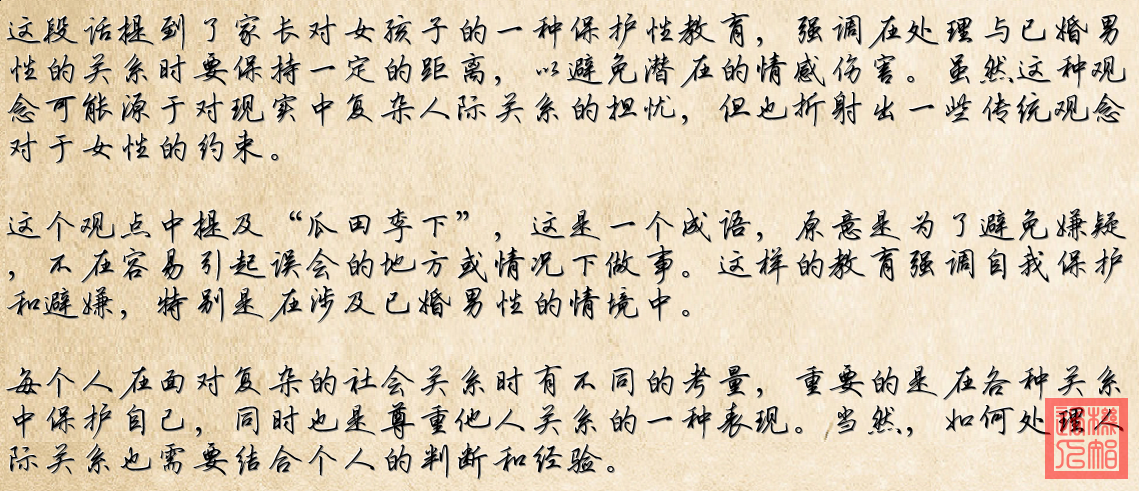 这段话提到了家长对女孩子的一种保护性教育，强调在处理与已婚男
性的关系时要保持一定的距离，以避免潜在的情感伤害。虽然这种观
念可能源于对现实中复杂人际关系的担忧，但也折射出一些传统观念
对于女性的约束。
这个观点中提及“瓜田李下”，这是一个成语，原意是为了避免嫌疑
，不在容易引起误会的地方或情况下做事。这样的教育强调自我保护
和避嫌，特别是在涉及已婚男性的情境中。
每个人在面对复杂的社会关系时有不同的考量，重要的是在各种关系
中保护自己，同时也是尊重他人关系的一种表现。当然，如何处理人
际关系也需要结合个人的判断和经验。